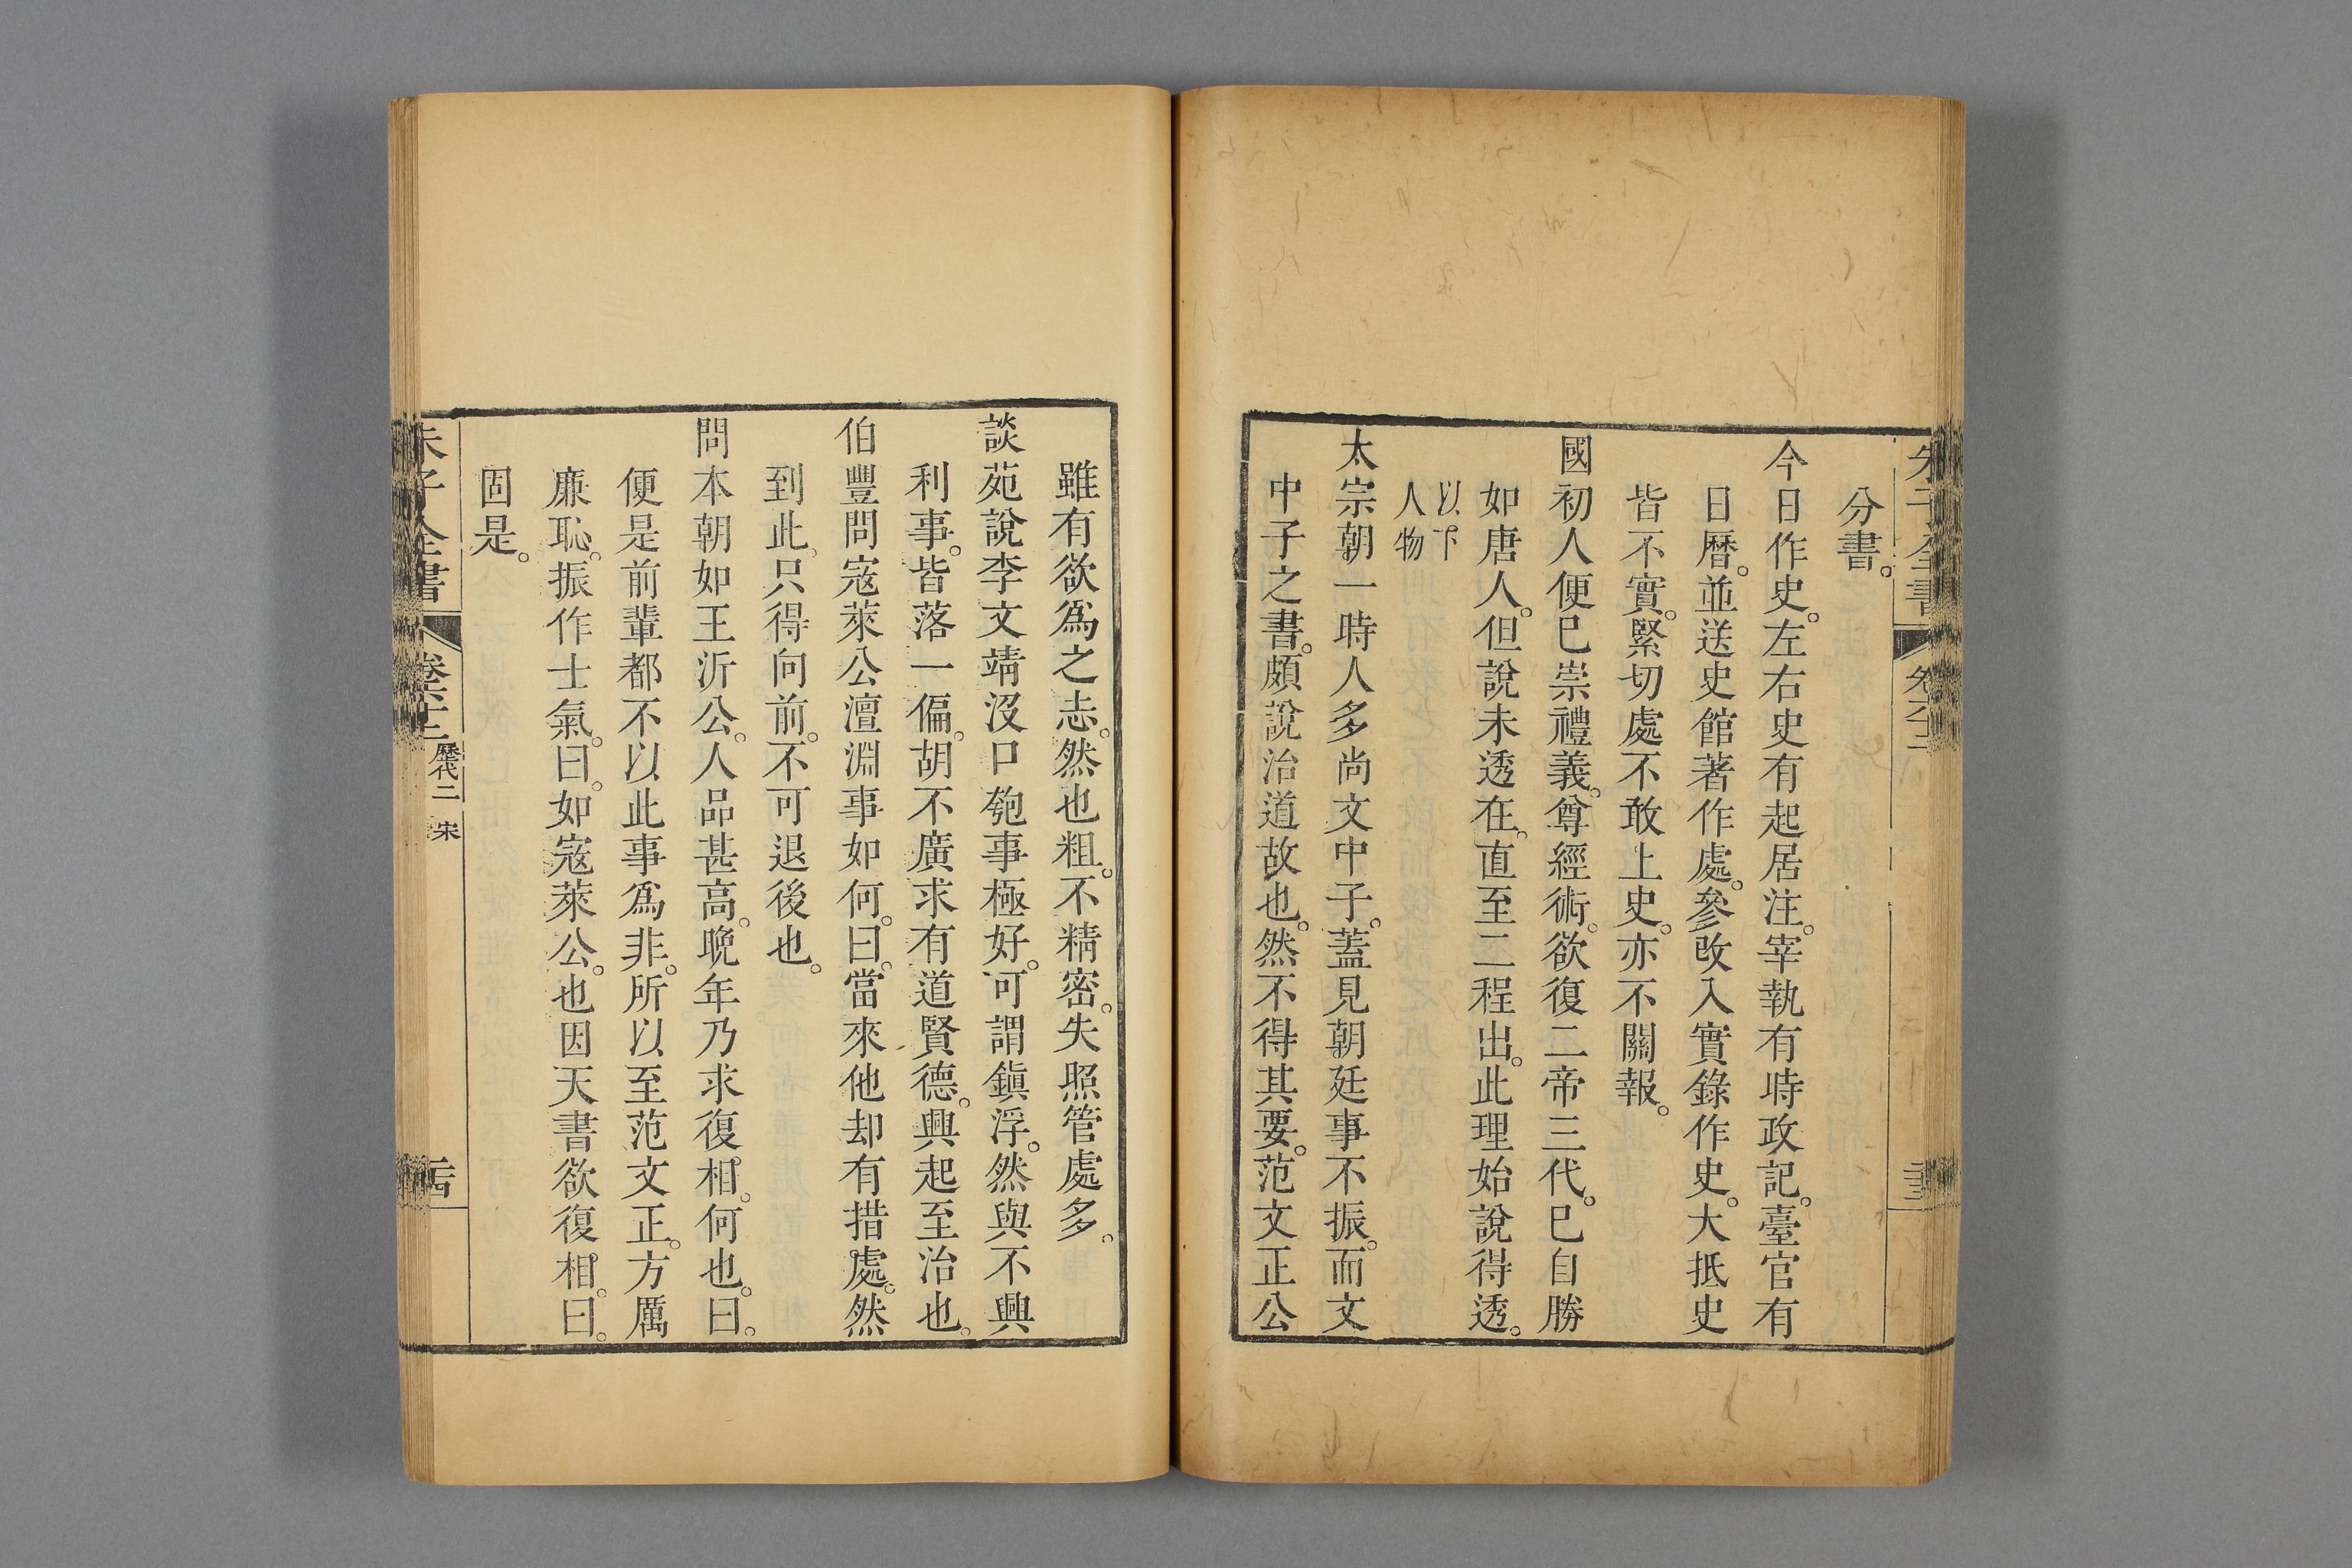 朱子全書
分書。
今日作史。左右史有起居注。宰執有時政記。臺官有
日曆。並送史館著作處。參改入實錄作史。大抵史
皆不實。緊切處不敢上史。亦不關報。
國初人便已崇禮義。尊經術。欲復二帝三代。已自勝
如唐人。但說未透在。直至二程出。此理始說得透。
以下
人物
太宗朝一時人多尚文中子。蓋見朝廷事不振。而文
中子之書。頗說治道故也。然不得其要。范文正公
雖有欲爲之志。然也粗。不精密。失照管處多。
談苑說李文靖沒口匏事極好。可謂鎮浮。然與不興
利事。皆落一偏。胡不廣求有道賢德。興起至治也。
伯豐問寇萊公澶淵事如何。曰。當來他却有措處。然
到此。只得向前。不可退後也。
問本朝如王沂公。人品甚高。晚年乃求復相。何也。曰。
便是前輩都不以此事爲非。所以至范文正。方厲
廉恥。振作士氣。曰。如寇萊公。也因天書欲復相。曰。
固是。
朱子全書
歷代二 宋